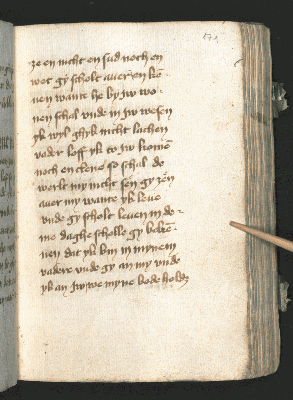 171
ze en nicht en sud noch en
wet gy scholt auer en ken
nen wante he by iw wo
nen schal vnde in iw wesen
yk wyl ghyk nicht lathen
vader leß yk to iw komen
noch en clene so schal de
werlt my nicht sen gy zen
auer my wante yk leue
vnde gy scholt leuen in de
me daghe scholle gy beke
nen dat yk bin in mynem
vadere vnde gy an my vnde
yk an iw we myne bode holdz